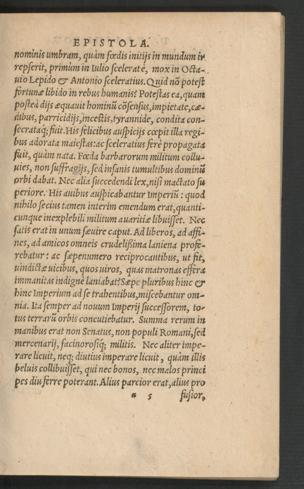 EPISTOLA.
nominis umbram, quàm fœdis initijs in mundum ir
repserit, primùm in Iulio sceleratè, mox in Octa-
uio Lepido & Antonio sceleratius. Quid nõ potest
fortunæ libido in rebus humanis? Potestas ea, quam
posteà dijs æquauit hominũ cõsensus, impietate, cæ-
dibus, parricidijs, incestis, tyrannide, condita con-
secrataq; fuit. His felicibus auspicijs cœpit illa regi-
bus adorata maiestas: ac sceleratius ferè propagata
fuit, quàm nata. Fœda barbarorum militum collu-
uies, non suffragijs, sed insanis tumultibus dominũ
orbi dabat. Nec alia succedendi lex, nisi mactato su
periore. His auibus auspicabantur Imperiũ: quod
nihilo secius tamen interim emendum erat, quanti-
cunque inexplebili militum auaritiæ libuisset. Nec
satis erat in unum sæuire caput. Ad liberos, ad affi-
nes, ad amicos omneis crudelißima laniena profe-
rebatur: ac sæpenumero reciprocantibus, ut fit,
uindictæ uicibus, quos uiros, quas matronas effera
immanitas indignè laniabat? Sæpe pluribus hinc &
hinc Imperium ad se trahentibus, miscebantur om-
nia. Ita semper ad nouum Imperij successorem, to-
tus terrarũ orbis concutiebatur. Summa rerum in
manibus erat non Senatus, non populi Romani, sed
mercenarij, facinorosiq; militis. Nec aliter impe-
rare licuit, neq; diutius imperare licuit, quàm illis
beluis collibuisset, qui nec bonos, nec malos princi
pes diu ferre poterant. Alius parcior erat, alius pro
a 5 fusior,